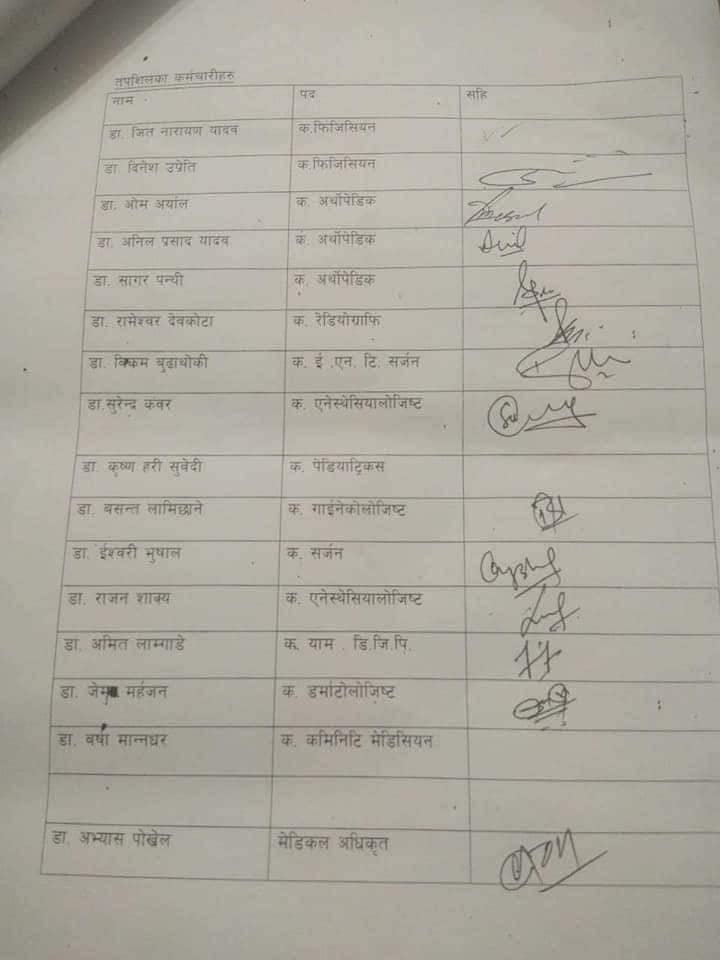 तपशिलका कर्मचारीहरु
नाम पद सहि
डा. जित नारायण यादव क.फिजिसियन
डा. दिनेश उप्रेति क.फिजिसियन
डा. ओम अर्याल क. अर्थोपेडिक
डा. अनिल प्रसाद यादव क. अर्थोपेडिक Anil
डा. सागर पन्थी क. अर्थोपेडिक
डा. रामेश्वर देवकोटा क. रेडियोग्राफि
डा. विक्रम बुढाथोकी क. ई .एन. टि. सर्जन
डा.सुरेन्द्र कवर क. एनेस्थेसियालोजिष्ट
डा. कृष्ण हरी सुवेदी क. पेडियाट्रिकस
डा. बसन्त लामिछाने क. गाईनेकोलोजिष्ट
डा. ईश्वरी भुषाल क. सर्जन
डा. राजन शाक्य क. एनेस्थेसियालोजिष्ट
डा. अमित लाम्गाडे क. याम . डि.जि.पि.
डा. महर्जन क. डर्माटोलोजिष्ट
डा. वर्षा मान्नधर क. कमिनिटि मेडिसियन
डा. अभ्यास पोखेल मेडिकल अधिकृत